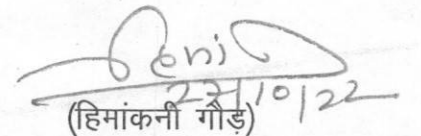 27/10/22
(हिमांकनी गौड़)